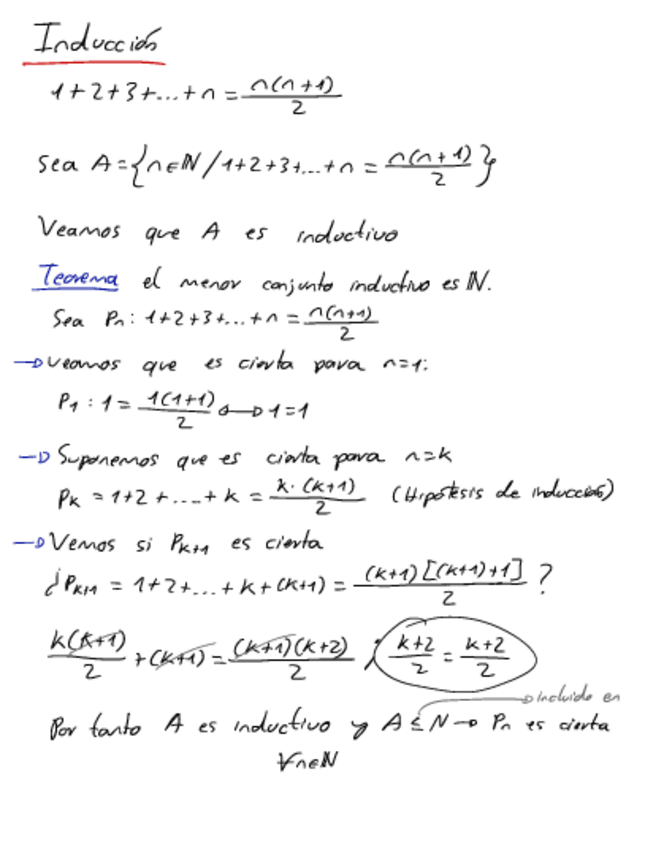 Inducción
1+2+3+...+n = n(n+1)/2
Sea A = {n∈ℕ / 1+2+3+...+n = n(n+1)/2}
Veamos que A es inductivo
Teorema el menor conjunto inductivo es ℕ.
Sea Pn: 1+2+3+...+n = n(n+1)/2
→ Veamos que es cierta para n=1:
P1 : 1 = 1(1+1)/2 ↔ 1=1
→ Suponemos que es cierta para n=k
Pk = 1+2+....+k = k·(k+1)/2 (Hipótesis de inducción)
→ Vemos si Pk+1 es cierta
¿Pk+1 = 1+2+...+k+(k+1) = (k+1)[(k+1)+1]/2 ?
k(k+1)/2 + (k+1) = (k+1)(k+2)/2 ; k+2/2 = k+2/2
→ incluido en
Por tanto A es inductivo y A ⊆ N → Pn es cierta
∀n∈ℕ